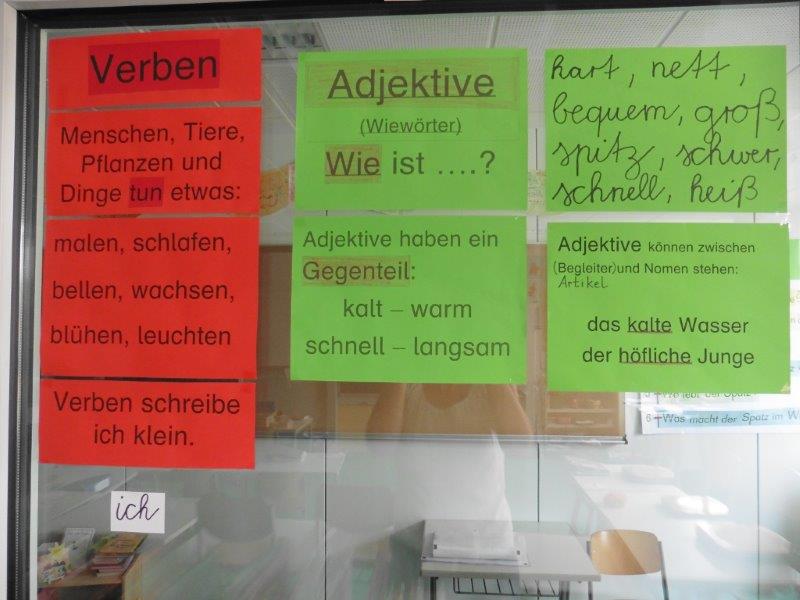 Verben
Menschen, Tiere,
Pflanzen und
Dinge tun etwas:
malen, schlafen,
bellen, wachsen,
blühen, leuchten
Verben schreibe
ich klein.
ich
Adjektive
(Wiewörter)
Wie ist ....?
Adjektive haben ein
Gegenteil:
kalt – warm
schnell – langsam
hart, nett,
bequem, groß,
spitz, schwer,
schnell, heiß
Adjektive können zwischen
(Begleiter)und Nomen stehen:
Artikel
das kalte Wasser
der höfliche Junge
Was macht der Spatz im